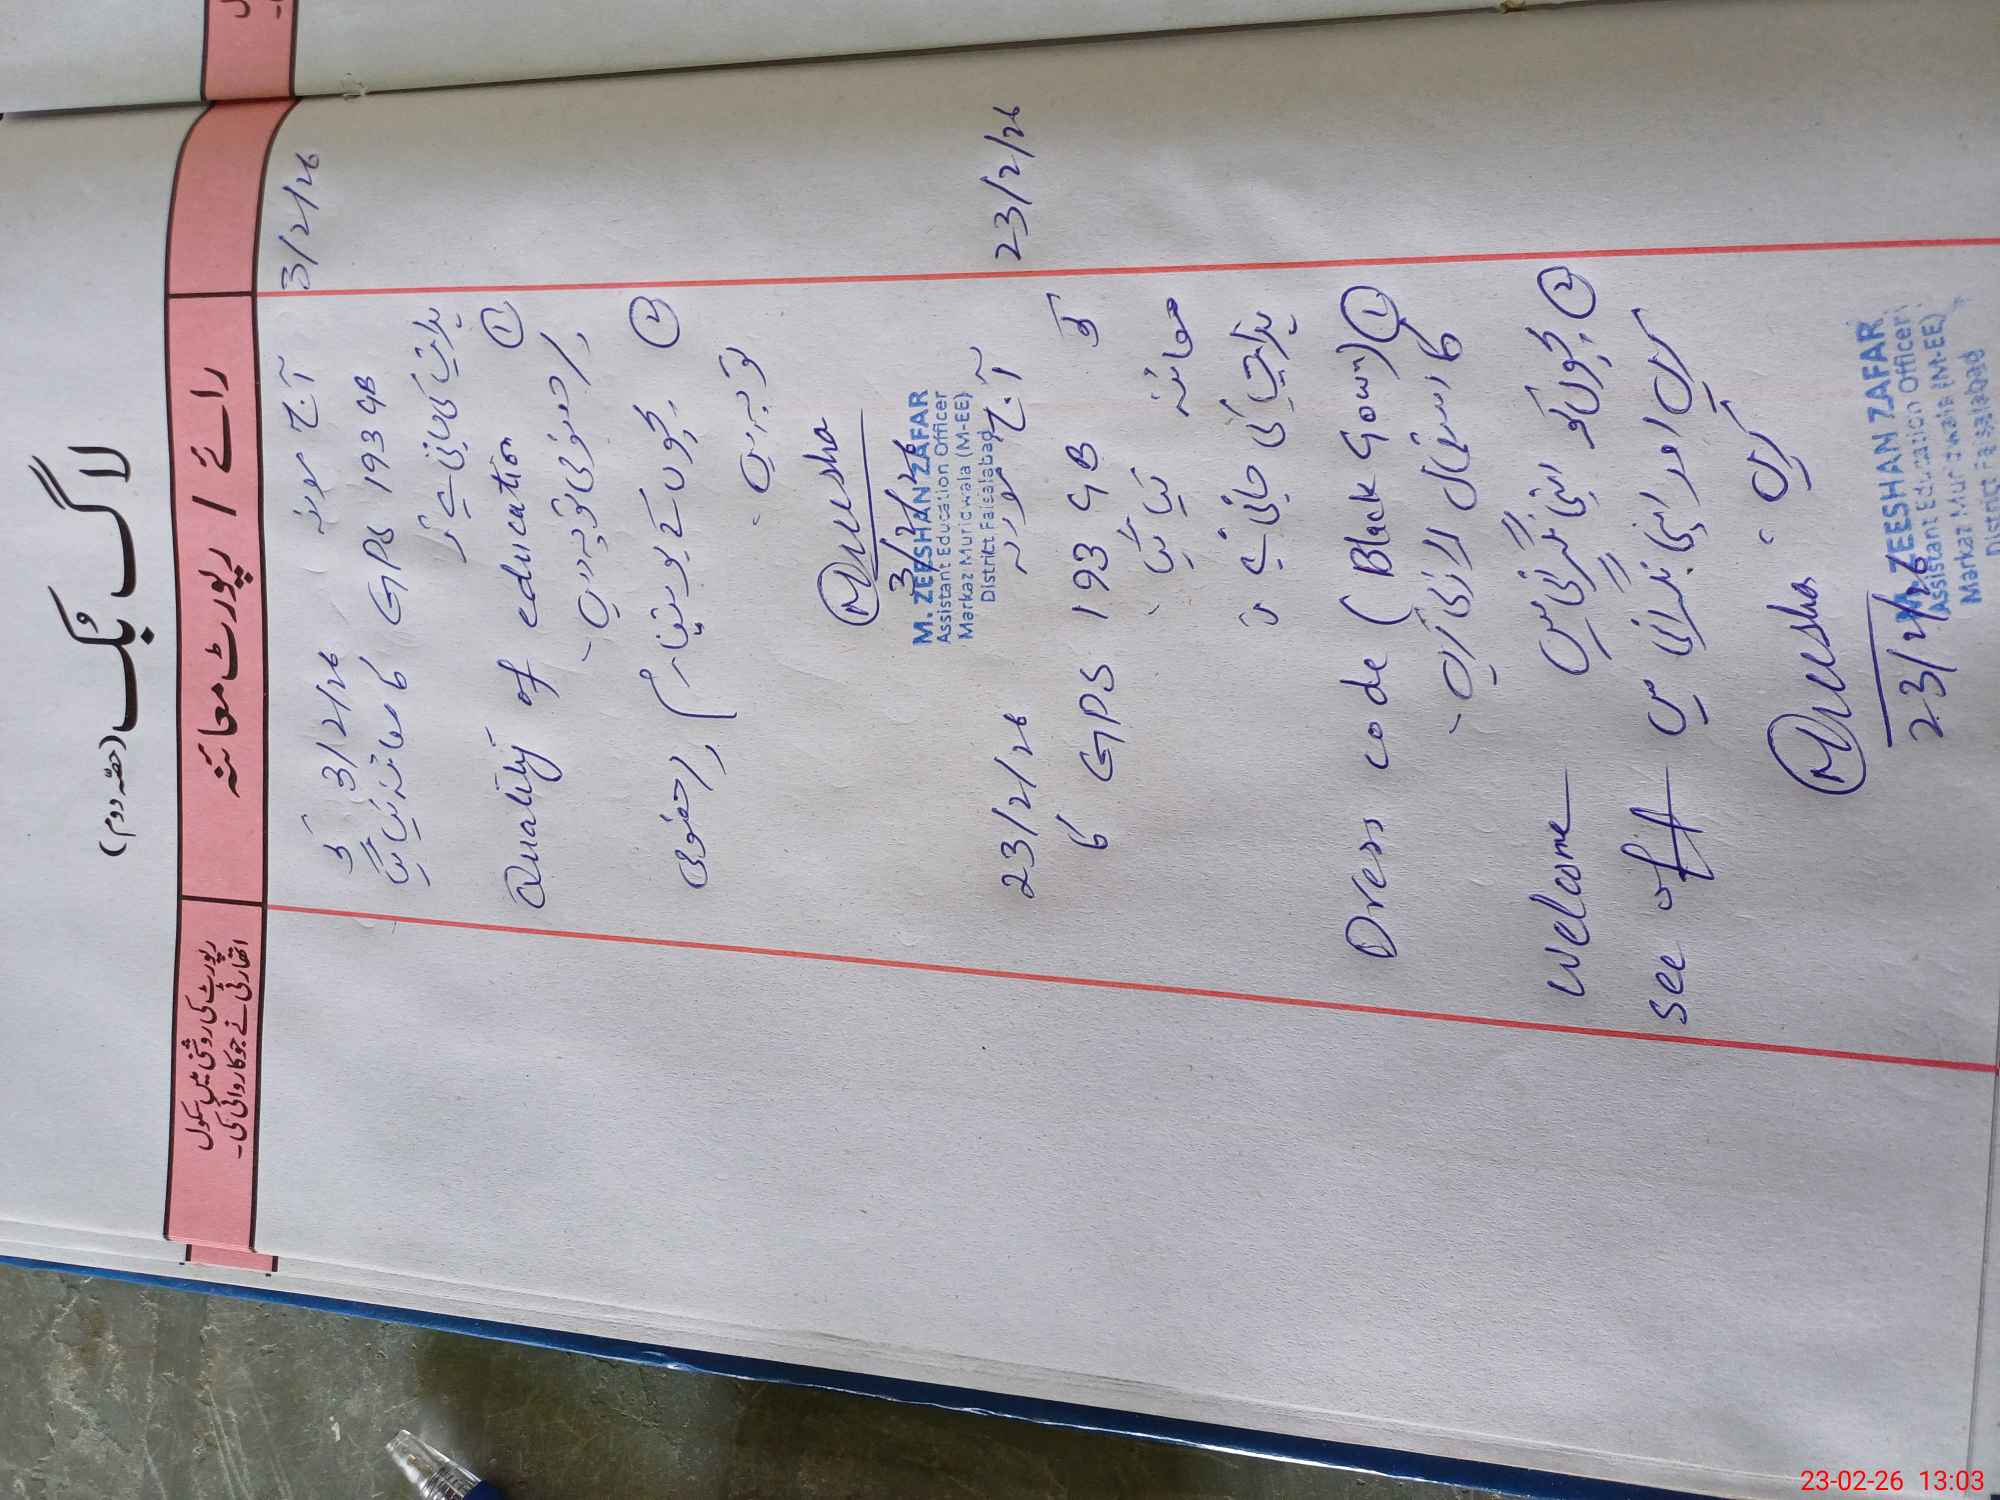 لاگ بُک (حصّہ دوم)
رائے / رپورٹ معائنہ
رپورٹ کی روشنی میں سکول
اتھارٹی نے جو کاروائی کی۔
3/2/26
آج مورخہ 3/2/26 کو
GPS 193 GB کا معائنہ کیا گیا
ہدایت کی جاتی ہے کہ
① Quality of education
پر خصوصی توجہ دیں۔
② بچوں کے یونیفارم
پر خصوصی
توجہ دیں۔
Qunsha
3/2/26
M. ZEESHAN ZAFAR
Assistant Education Officer
Markaz Muridwala (M-EE)
District Faisalabad
23/2/26
آج مورخہ 23/2/26
کو GPS 193 GB کا
معائنہ کیا گیا۔
ہدایت کی جاتی ہے کہ
① Dress code (Black Gown)
کا استعمال لازمی کریں۔
② بچوں کو اپنی نگرانی میں welcome
کریں اور اپنی نگرانی میں see off
کریں۔
23/2/26
M. ZEESHAN ZAFAR
Assistant Education Officer
Markaz Muridwala (M-EE)
District Faisalabad
23-02-26 13:03